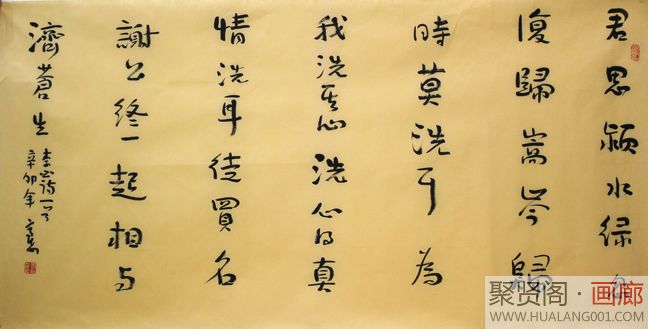 君思颍水緑忽
復歸嵩岑歸
時莫洗耳為
我洗其心洗心得真
情洗耳徒買名
謝公終一起相与
濟蒼生
李白诗一首
辛卯年
聚贤阁·画廊
WWW.HUALANG001.COM